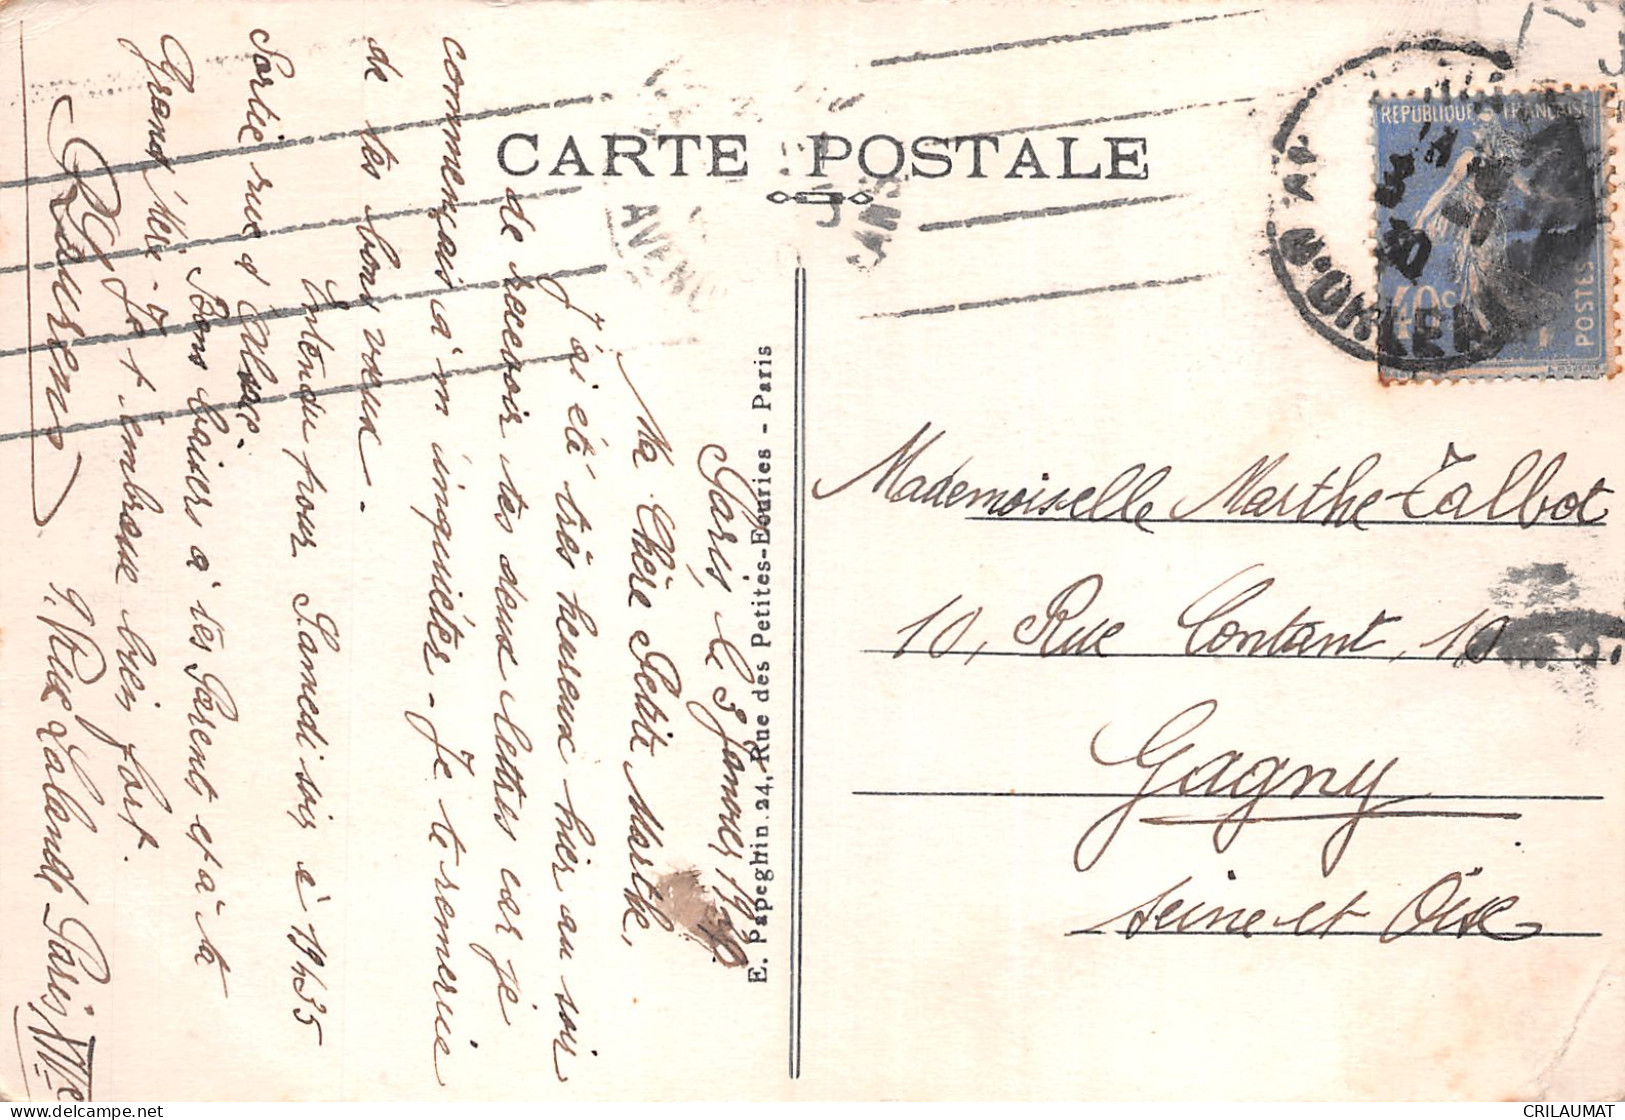 CARTE POSTALE
E. Papeghin. 24, Rue des Petites-Ecuries - Paris
Paris, le 3 Janvier 19
Ma Chère Petite Marthe,
J'ai été très heureux hier au soir
de recevoir tes deux lettres car je
commençais à m'inquiéter - Je te remercie
de tes bons voeux.
Entendu pour Samedi soir à 19h35
Sortie rue d'Alsace.
Bons baisers à tes Parents et à ta
Grand'Mère - Je t'embrasse bien fort.
R Laurens
9. Rue Lalande Paris XIVe
REPUBLIQUE FRANÇAISE
40c
POSTES
Mademoiselle Marthe Talbot
10, Rue Contant, 10
Gagny
Seine et Oise
CRILAUMAT